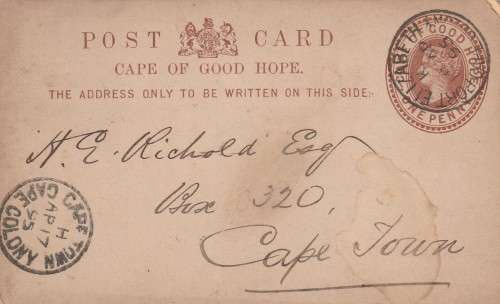 POST CARD
CAPE OF GOOD HOPE.
THE ADDRESS ONLY TO BE WRITTEN ON THIS SIDE:-
GOOD HOPE
ONE PENNY
PORT ELIZABETH
H. E. Richold Esq
Box 320,
Cape Town
CAPE TOWN CAPE COLONY
H
AP 17
95